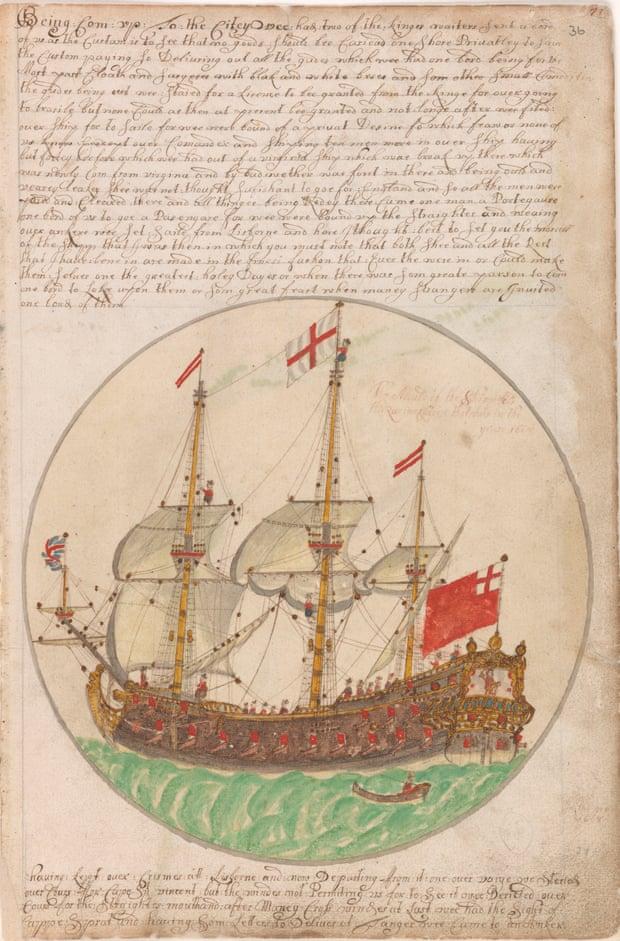 36
Being Com: up: To: the Citey wee: had: two of the kinges waiters sent a bord
of us as the Custam is to See that no goods Should bee Caried one Shore Privatley to Save
the Custom paying So Delivring out all the gudes which wee had one bord being for the
Most part Cloath and Saryees with blak and white and Som other Small
the gudes being out wee: Staied for a Licence to bee granted from the kinge for over going
to brasile but none Could as then at present bee granted and not longe after wee fitted
over Ship for to Saile for wee were bound of a privat Desine
us known Except over Comander and Shipping ten men more in over Ship having
but forty before which wee had out of a virginia Ship which was broak up there which
was newly Com from virginia and by bad wether was forst in there and being ould and
veary Leakey Shee was not thought Sufishant to goe for England and So all the men were
and Cleared there and all thinges being Redey there Came one man a Portegause
one bord of us to goe a Pasengare for wee were bound up the Straightes and
over ankere wee Set Saile from Lisborne and here I thought best to Set you the
of the Ship that I was then in which you must note that both Shee and all the Rest
that I have bene in are made in the
them Selves one the greatest holey Dayes or when there was Som greate parson to Com
one bord to Loke upon them or Som great feast when maney Strangers are Invited
one bord of them
The of the Ship
in the
yeare
having: Left over: Crismes: all: Lisborne and now Departing from it one over
over Cours for Cape St vincent but the windes not Permiting us for to See it wee Derected over
Cours for the Straightes mouth and after Maney Cross windes at Last wee had the Sight of
Cappe Spratt and having Som Letters to Deliver at Tanger wee Came to an Anker